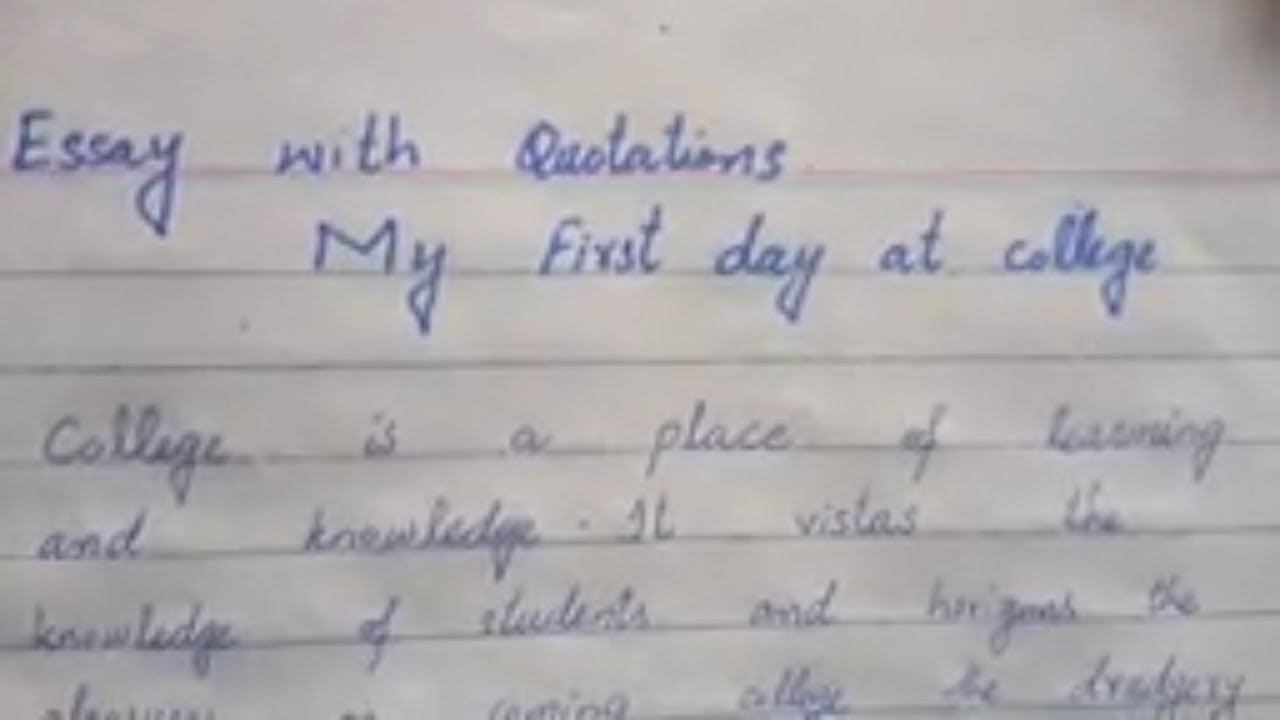 Essay with Quotations
My First day at college
College is a place of learning
and knowledge. It vistas the
knowledge of students and horizons the
coming college the drudgery